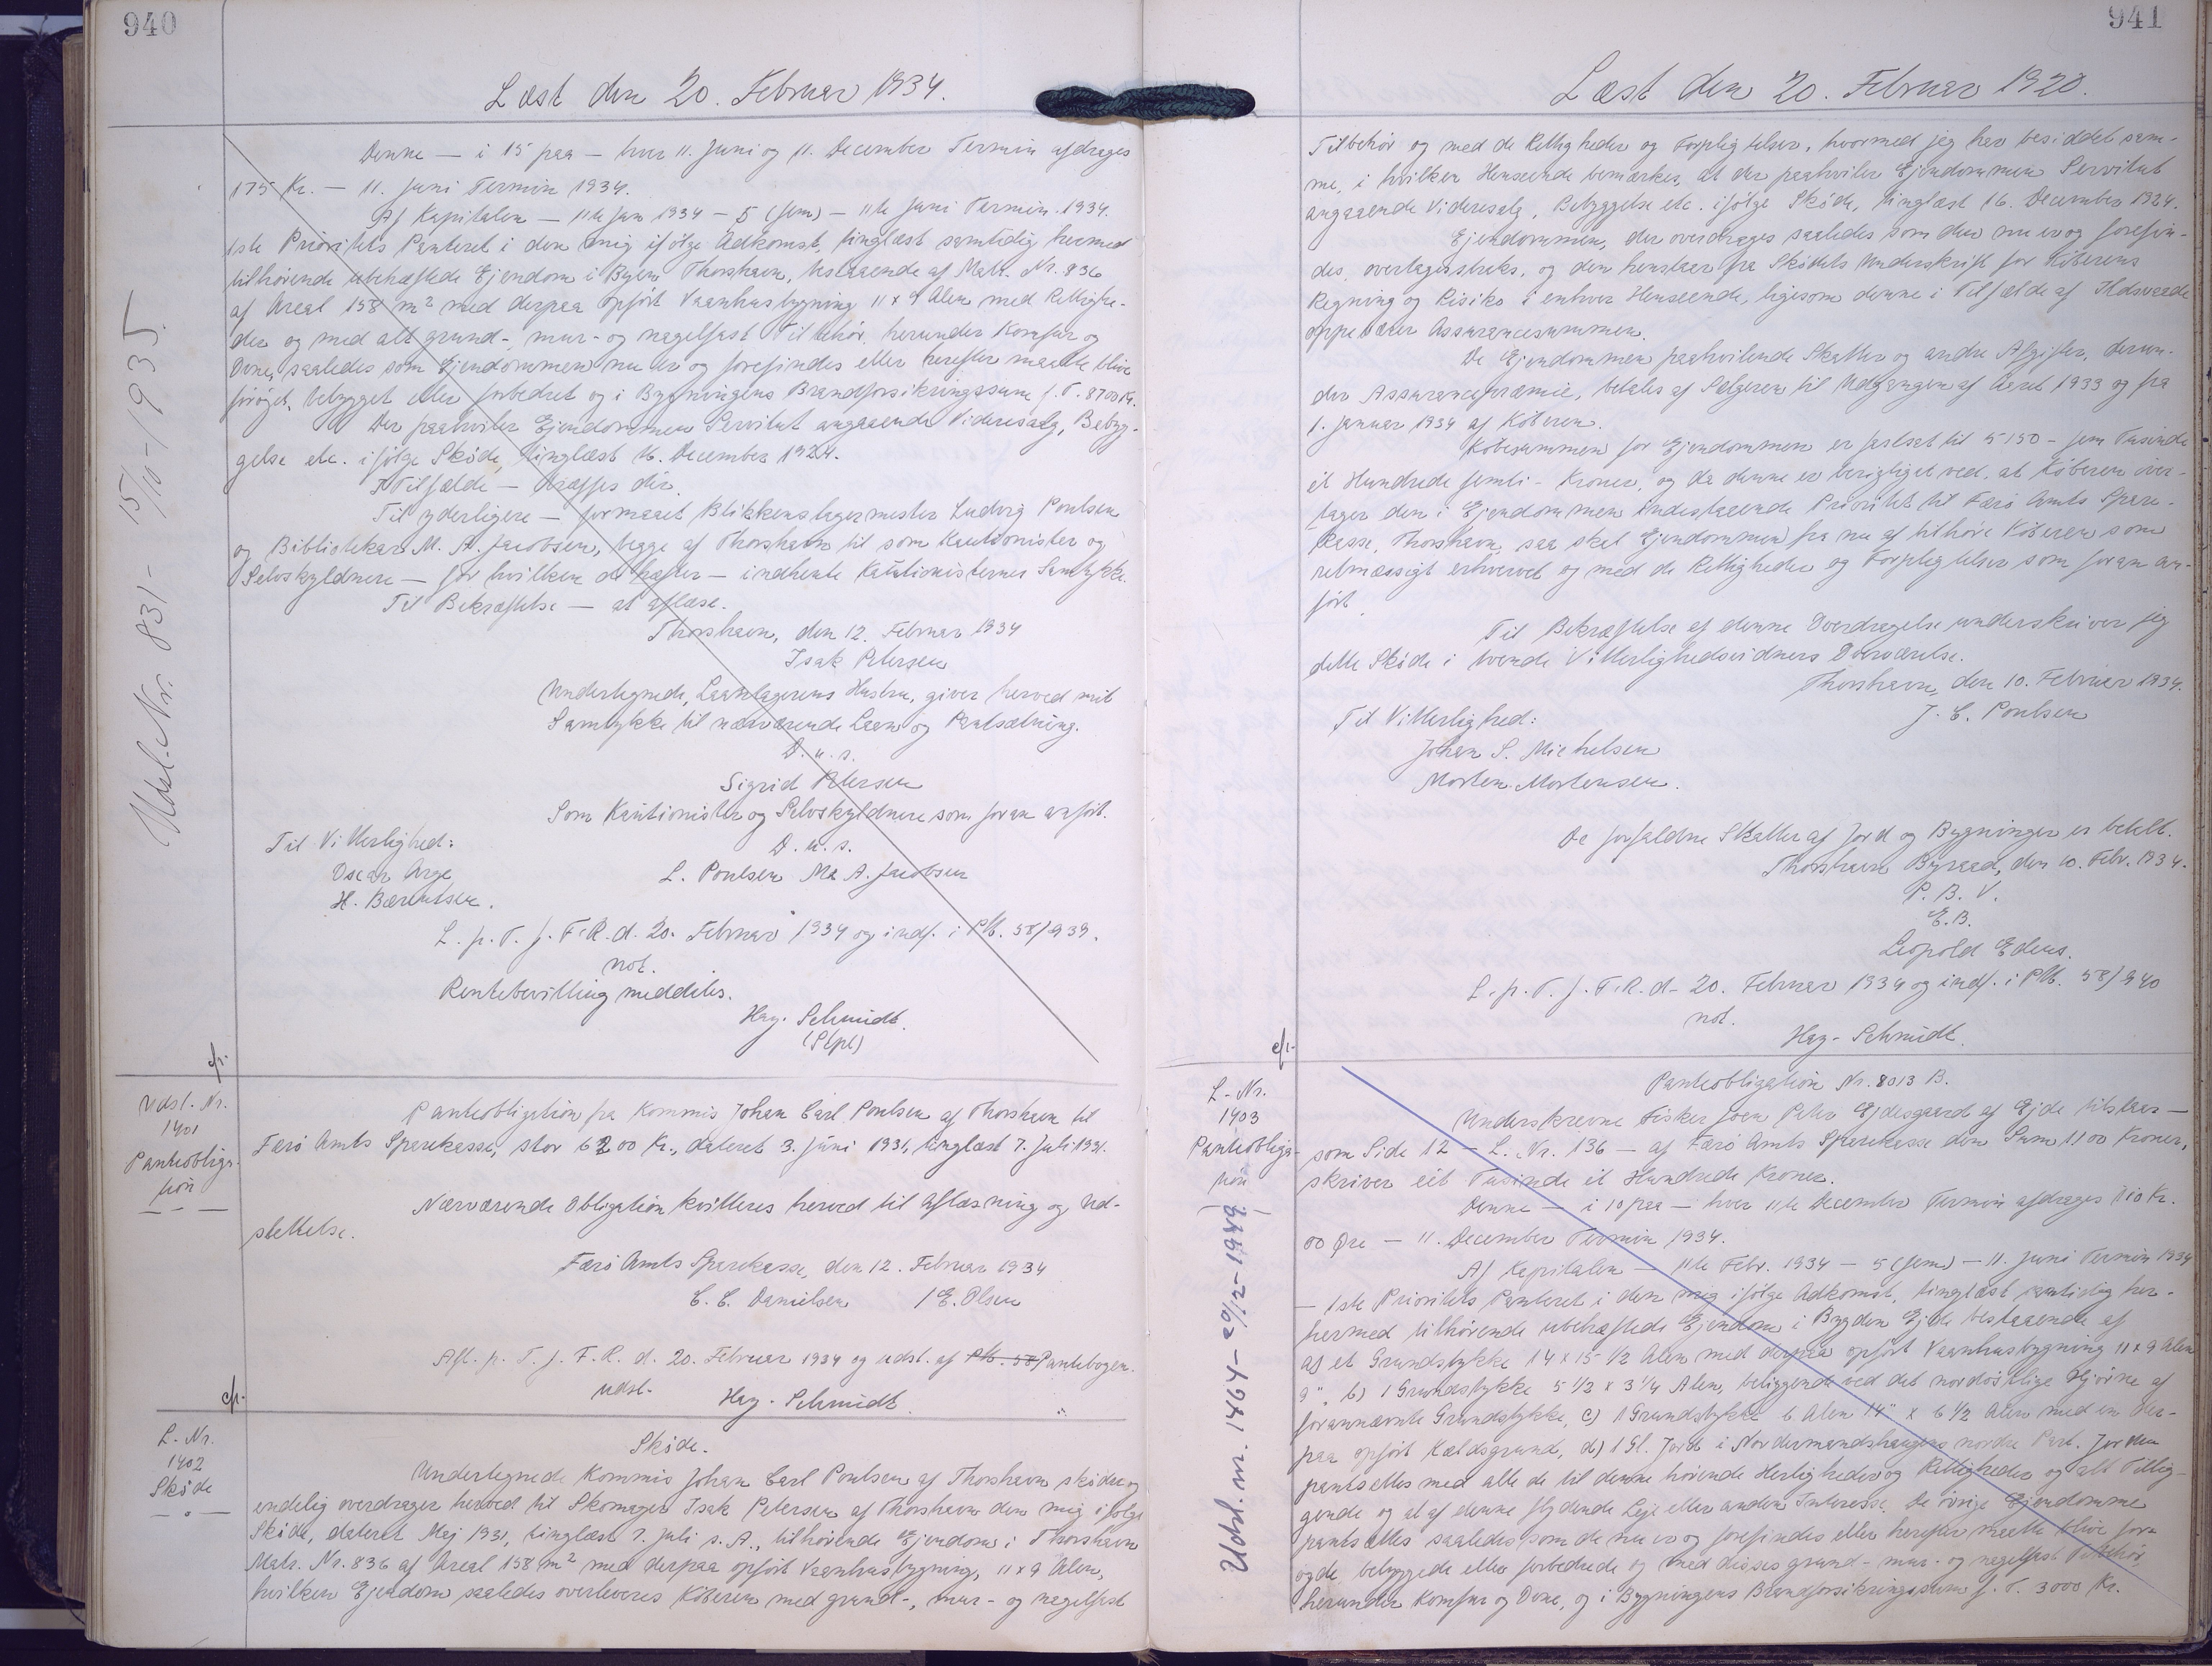 940
Læst den 20. Februar 1934.
Denne — i 15 paa — hver 11. Juni og 11. December Termin afdrages
175 Kr. — 11. Juni Termin 1934.
Af Kapitalen — 11te Jan 1934 — 5 (fem) — 11te Juni Termin 1934.
1ste Prioritets Panteret i den mig ifølge Adkomst, tinglæst samtidig hermed
tilhørende ubehæftede Ejendom i Byen Thorshavn, bestaaende af Matr. Nr. 836
af Areal 158 m² med derpaa opført Vaanhusbygning 11 x 9 Alen med Rettighe-
der og med alt grund-, mur- og nagelfast Tilbehør, herunder Komfur og
Ovne, saaledes som Ejendommen nu er og forefindes eller herefter maatte blive
forøget, bebygget eller forbedret og i Bygningens Brandforsikringssum f. T. 8700 Kr.
Der paahviler Ejendommen Servitut angaaende Videresalg, Bebyg-
gelse etc. ifølge Skøde, tinglæst 16. December 1924.
I Tilfælde — træffes dér.
Til yderligere — formaaet Blikkenslagermester Ludvig Poulsen
og Bibliotekar M. A. Jacobsen, begge af Thorshavn til som Kautionister og
Selvskyldnere — for hvilken de hæfter — indhente Kautionisternes Samtykke.
Til Bekræftelse — at aflæse.
Thorshavn, den 12. Februar 1934
Isak Petersen
Undertegnede, Laantagerens Hustru, giver herved mit
Samtykke til nærværende Laan og Pantsætning.
D. u. s.
Sigrid Petersen
Som Kautionister og Selvskyldnere som foran anført.
Til Vitterlighed:
D. u. s.
Oscar Arge
L. Poulsen M. A. Jacobsen
H. Bærentsen.
L. p. T. f. F. R. d. 20. Februar 1934 og indf. i Pb. 58/939.
not.
Rentebevilling meddeles.
Hag. Schmidt.
Udsl. Nr. 831 - 15/10 - 1935.
Udsl. Nr.
1401
Panteobliga-
tion
Panteobligation fra Kommis Johan Carl Poulsen af Thorshavn til
Færø Amts Sparekasse, stor 6200 Kr., dateret 3. Juni 1931, tinglæst 7. Juli 1931.
Nærværende Obligation kvitteres herved til Aflæsning og Ud-
slettelse.
Færø Amts Sparekasse, den 12. Februar 1934
C. C. Danielsen / E. Olsen
Afl. p. T. f. F. R. d. 20. Februar 1934 og udsl. af Pb. 58 Pantebogen.
udsl.
Hag. Schmidt.
L. Nr.
1402
Skøde
Skøde.
Undertegnede Kommis Johan Carl Poulsen af Thorshavn skøder og
endelig overdrager herved til Skomager Isak Petersen af Thorshavn den mig ifølge
Skøde, dateret Maj 1931, tinglæst 7. Juli s. A., tilhørende Ejendom i Thorshavn
Matr. Nr. 836 af Areal 158 m² med derpaa opført Vaanhusbygning, 11 x 9 Alen,
hvilken Ejendom saaledes overleveres Køberen med grund-, mur- og nagelfast
941
Læst den 20. Februar 1920.
Tilbehør og med de Rettigheder og Forpligtelser, hvormed jeg har besiddet sam-
me, i hvilken Henseende bemærkes, at der paahviler Ejendommen Servitut
angaaende Videresalg, Bebyggelse etc. ifølge Skøde, tinglæst 16. December 1924.
Ejendommen, der overdrages saaledes som den nu er og forefin-
des, overtages straks, og den henstaar fra Skødets Underskrift for Køberens
Regning og Risiko i enhver Henseende, ligesom denne i Tilfælde af Ildsvaade
oppebærer Assurancesummen.
De Ejendommen paahvilende Skatter og andre Afgifter, derun-
der Assurancepræmie, betales af Sælgeren til Udgangen af Aaret 1933 og fra
1. Januar 1934 af Køberen.
Købesummen for Ejendommen er fastsat til 5150 - fem Tusinde
ét Hundrede femti - Kroner, og da denne er berigtiget ved, at Køberen over-
tager den i Ejendommen indestaaende Prioritet til Færø Amts Spare-
kasse, Thorshavn, saa skal Ejendommen fra nu af tilhøre Køberen som
retmæssigt erhvervet og med de Rettigheder og Forpligtelser som foran an-
ført.
Til Bekræftelse af denne Overdragelse underskriver jeg
dette Skøde i tvende Vitterlighedsvidners Overværelse.
Thorshavn, den 10. Februar 1934.
Til Vitterlighed:
J. C. Poulsen
Johan S. Michelsen
Morten Mortensen.
De forfaldne Skatter af Jord og Bygninger er betalt.
Thorshavn Byraad, den 10. Febr. 1934.
P. B. V.
E. B.
Leopold
L. p. T. f. F. R. d. 20. Februar 1934 og indf. i Pb. 58/940
not.
Hag. Schmidt.
L. Nr.
1403
Panteobliga-
tion
Udsl. nr. 1464 - 29/12 - 1949
Panteobligation Nr. 8013 B.
Underskrevne Fisker Joen Peter Ejdesgaard af Ejde tilstaar —
som Side 12 — L. Nr. 136 — af Færø Amts Sparekasse den Sum 1100 Kroner,
skriver eet Tusinde et Hundrede Kroner.
Denne — i 10 paa — hver 11te December Termin afdrages 110 Kr.
00 Øre — 11. December Termin 1934.
Af Kapitalen — 11te Febr. 1934 — 5 (fem) — 11. Juni Termin 1934
— 1ste Prioritets Panteret i den mig ifølge Adkomst, tinglæst samtidig her-
hermed tilhørende ubehæftede Ejendom i Bygden Ejde bestaaende af
a) et Grundstykke 14 x 15 1/2 Alen med derpaa opført Vaanhusbygning 11 x 9 Alen
9" b) 1 Grundstykke 5 1/2 x 3 1/4 Alen, beliggende ved det nordøstlige Hjørne af
forannævnte Grundstykke, c) 1 Grundstykke 6 Alen 14" x 6 1/2 Alen med en der-
paa opført Kældsgrund, d) 1 Gl. Jord i Nordermandshaugens nordre Part. Jorden
pantsættes med alle de til denne hørende Herligheder og Rettigheder og alt Tillig-
gende og al af denne flydende Leje eller anden Interesse. De øvrige Ejendomme
pantsættes saaledes som de nu er og forefindes eller herefter maatte blive for-
øgde bebyggede eller forbedrede og med disses grund-, mur- og nagelfast Tilbehør,
herunder Komfur og Ovne, og i Bygningens Brandforsikringssum f. T. 3000 Kr.